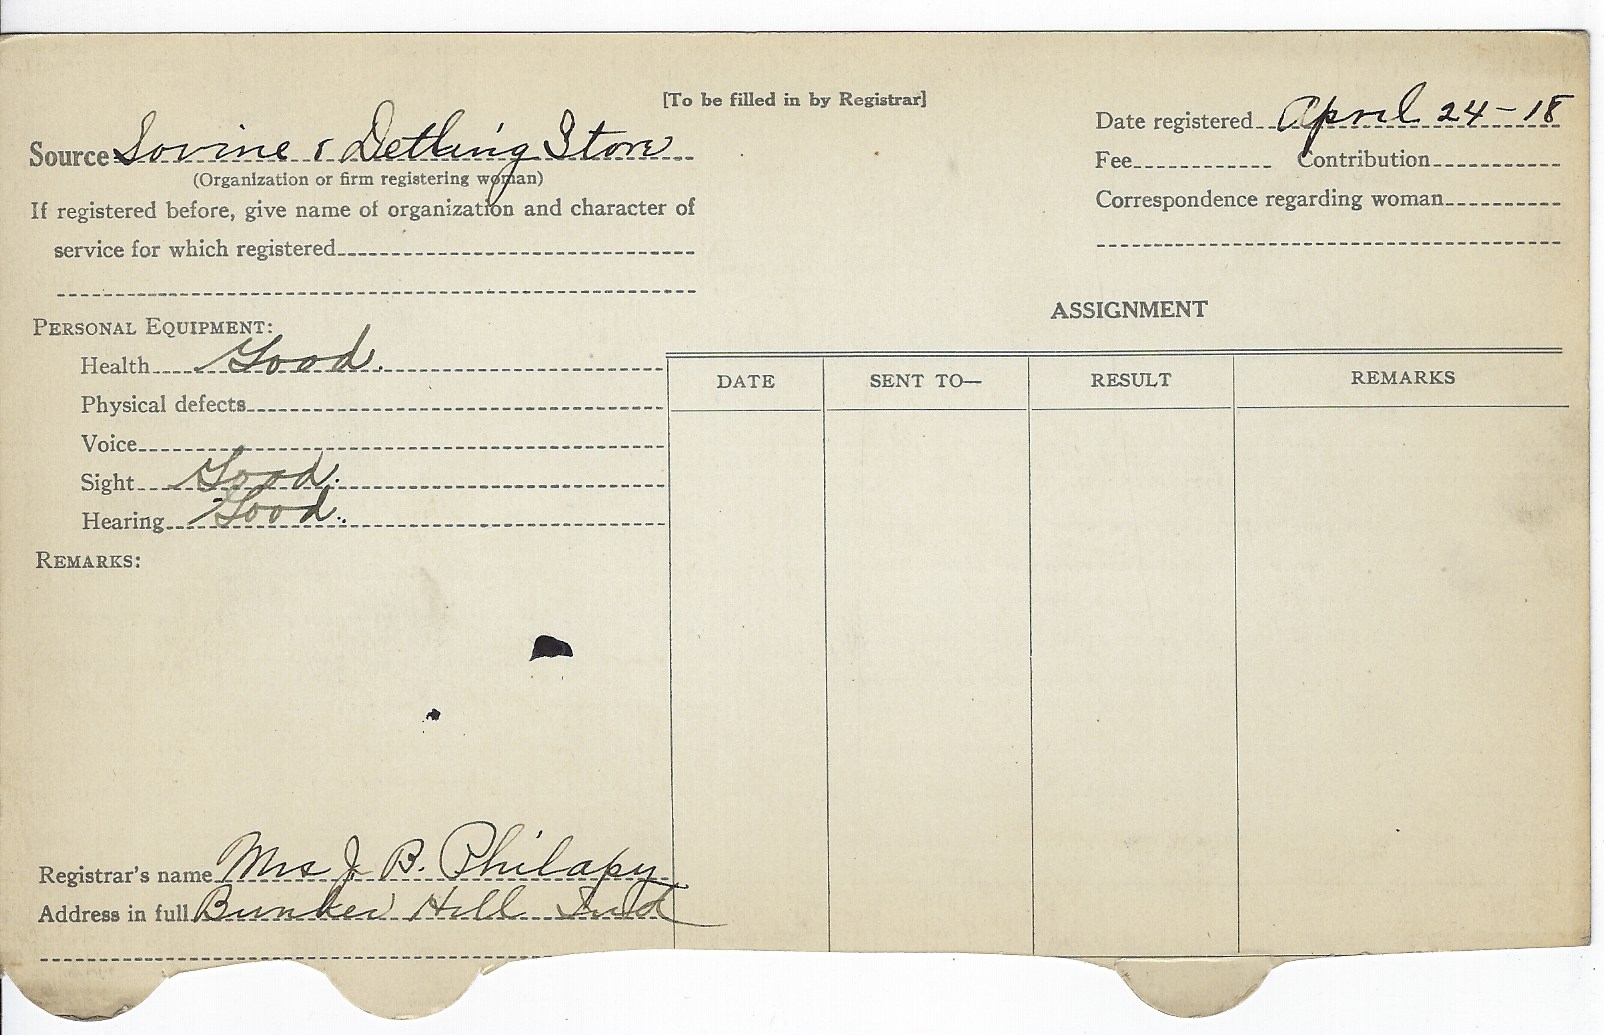 [To be filled in by Registrar]
Source Sovine & Detling Store
(Organization or firm registering woman)
If registered before, give name of organization and character of
service for which registered
Personal Equipment:
Health Good.
Physical defects
Voice
Sight Good.
Hearing Good.
Remarks:
Registrar's name Mrs J. B. Philapy
Address in full Bunker Hill Ind
Date registered April 24-18
Fee Contribution
Correspondence regarding woman
ASSIGNMENT
DATE SENT TO— RESULT REMARKS